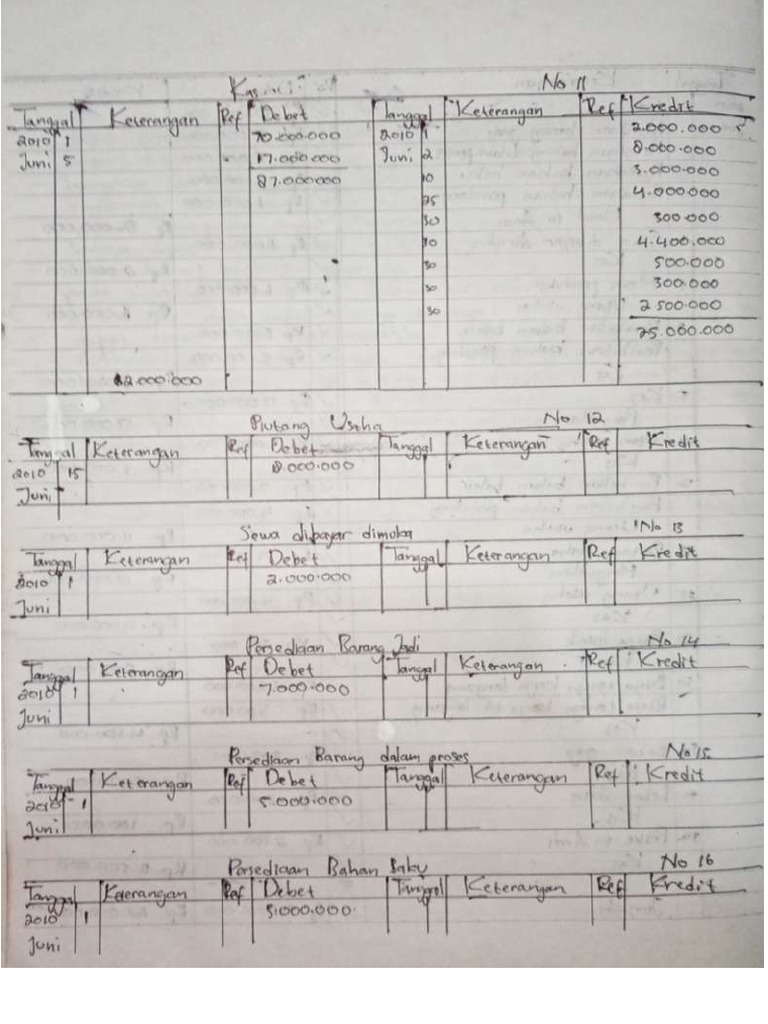 Kas No 11
Tanggal Keterangan Ref Debet Tanggal Keterangan Ref Kredit
2010 1 70.000.000 2010 1 2.000.000
Juni 5 17.000.000 Juni 2 8.000.000
87.000.000 10 3.000.000
25 4.000.000
30 300.000
30 4.400.000
30 500.000
30 300.000
30 2 500.000
25.000.000
62.000.000
Piutang Usaha No 12
Tanggal Keterangan Ref Debet Tanggal Keterangan Ref Kredit
2010 15 8.000.000
Juni
Sewa dibayar dimuka No 13
Tanggal Keterangan Ref Debet Tanggal Keterangan Ref Kredit
2010 1 2.000.000
Juni
Persediaan Barang Jadi No 14
Tanggal Keterangan Ref Debet Tanggal Keterangan Ref Kredit
2010 1 7.000.000
Juni
Persediaan Barang dalam proses No 15
Tanggal Keterangan Ref Debet Tanggal Keterangan Ref Kredit
2010 1 5.000.000
Juni
Persediaan Bahan Baku No 16
Tanggal Keterangan Ref Debet Tanggal Keterangan Ref Kredit
2010 1 5.000.000
Juni